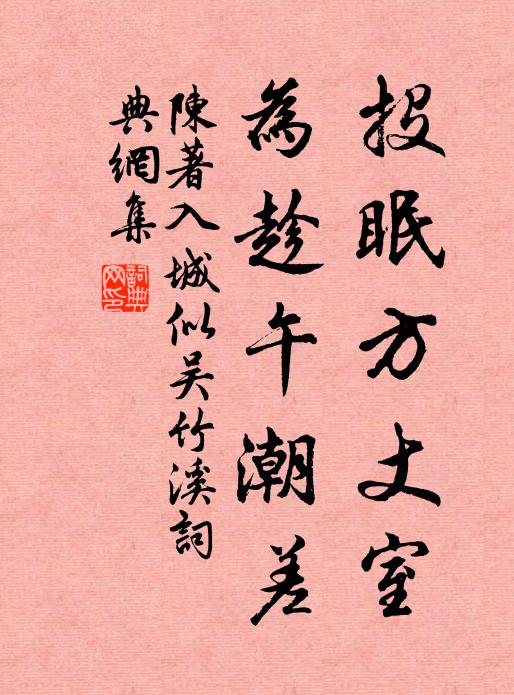 投眠方丈室
為趁午潮差
陳著入城似吴竹溪詞
典網集
詞典網印